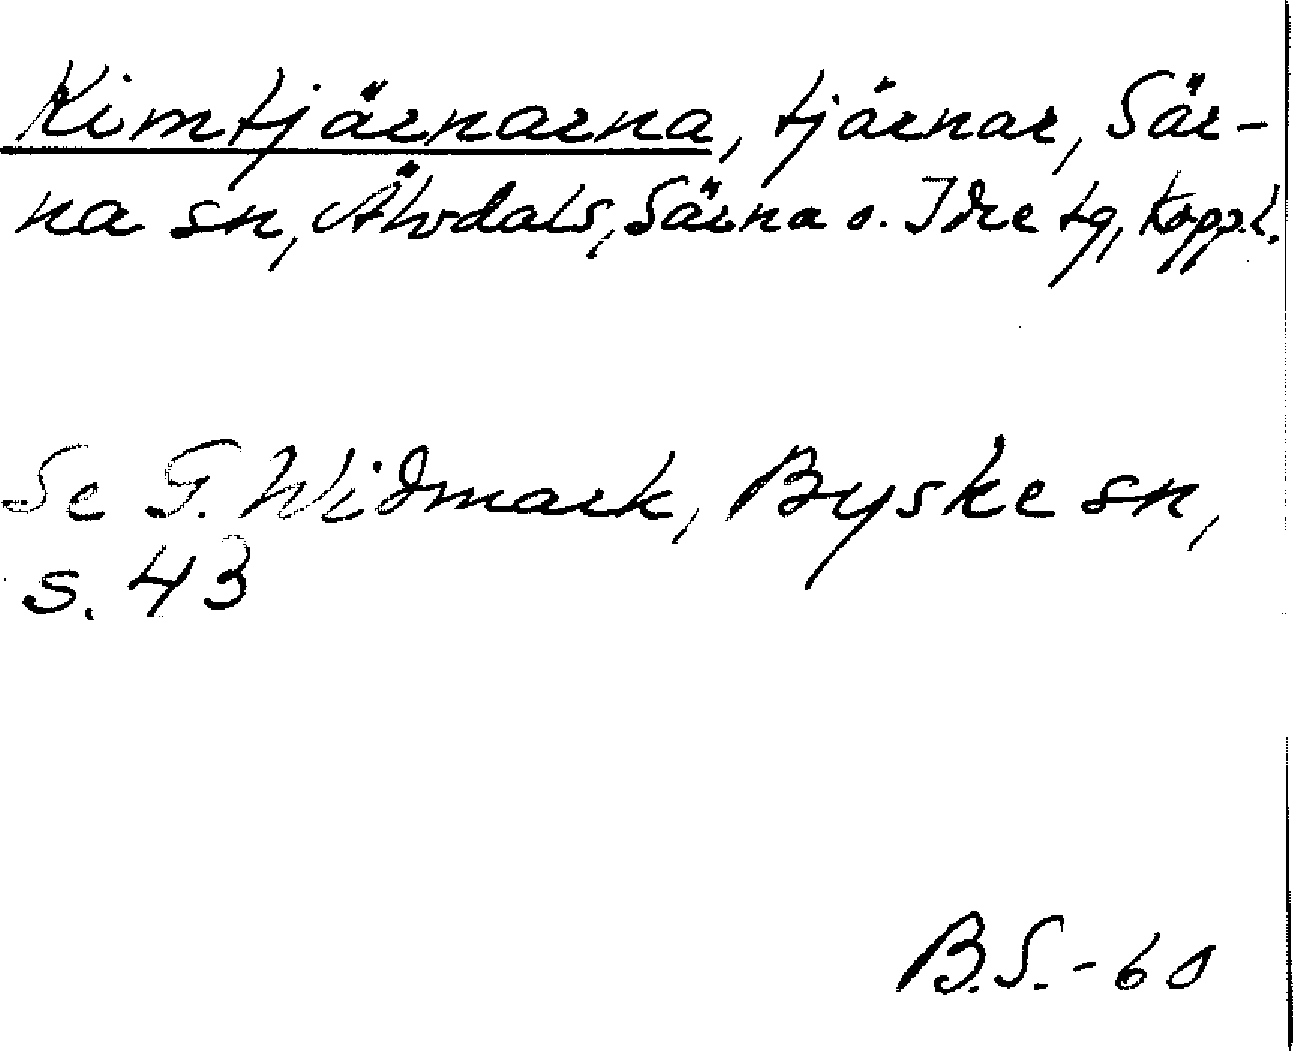 Kimtjärnarna, tjärnar, Sär-
na sn, Älvdals, Särna o. Idre tg, Kopp.l.
Se G. Widmark, Byske sn,
s. 43
B.S.-60